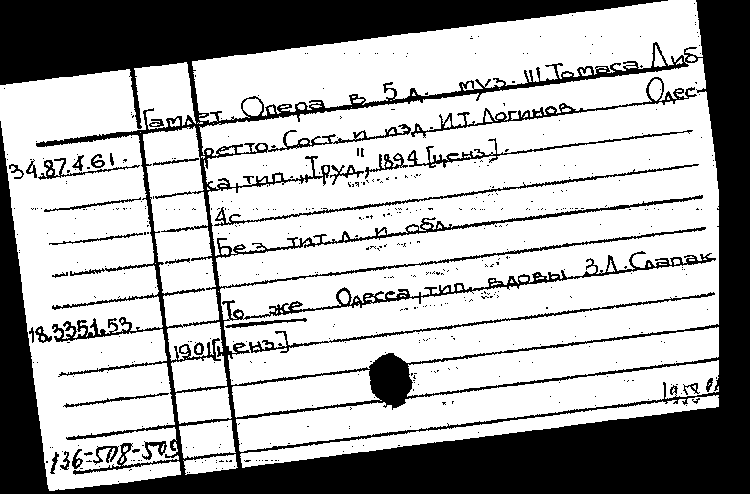 Гамлет. Опера в 5 д. муз. Ш. Томаса. Либ-
ретто. Сост. и изд. И.Т. Логинов. Одес-
34.87.4.61.
са, тип. „Труд", 1894 [ценз.].
4с
Без тит. л. и обл.
То же Одесса, тип. вдовы З.Л. Слапак
18.3351.53.
1901 [ценз.].
136-508-509